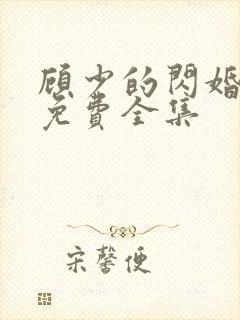 顾少的閃婚
免費全集
宋馨便